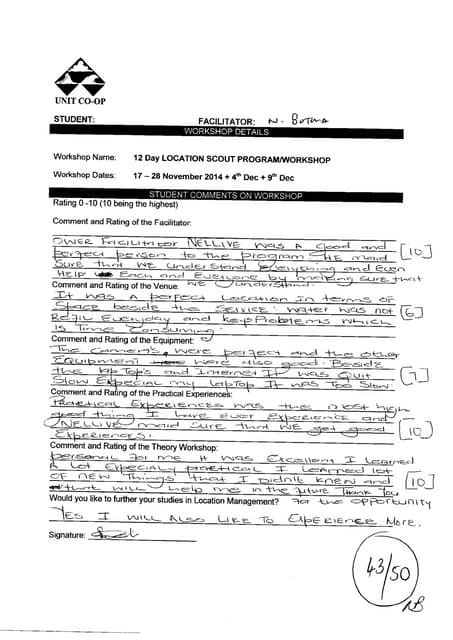 UNIT CO-OP
STUDENT:
FACILITATOR: N. BOTMA
WORKSHOP DETAILS
Workshop Name: 12 Day LOCATION SCOUT PROGRAM/WORKSHOP
Workshop Dates: 17 – 28 November 2014 + 4th Dec + 9th Dec
STUDENT COMMENTS ON WORKSHOP
Rating 0 -10 (10 being the highest)
Comment and Rating of the Facilitator:
OWER Facilitator NELLIVE WAS A good and
perfect person to the program SHE maid [10]
Sure that WE understand everything and Even
Help Each and Everyone by making sure that
WE understand.
Comment and Rating of the Venue:
IT WAS A perfect Location in terms of
Space beside the service: water was not [6]
Everyday and Problems which
Is Time Consuming.
Comment and Rating of the Equipment:
The Camera's were perfect and the other
Equipment were also good. Beside
the lap Top's and Internet IT was Quit [7]
Slow Expecial my Laptop IT was Too Slow.
Comment and Rating of the Practical Experiences:
Practical Experiences was the most high
good thing I have ever Experience and
NELLIVE maid sure that WE get good [10]
Experiences.
Comment and Rating of the Theory Workshop:
personal For me it was Excellent I learned
A lot Expecialy practical I learned lot
of new Things that I didn't knew and [10]
that will help me in the future Thank You
For the opportunity
Would you like to further your studies in Location Management?
YES I WILL ALSO LIKE TO EXPERIENCE More.
Signature:
43/50
NB